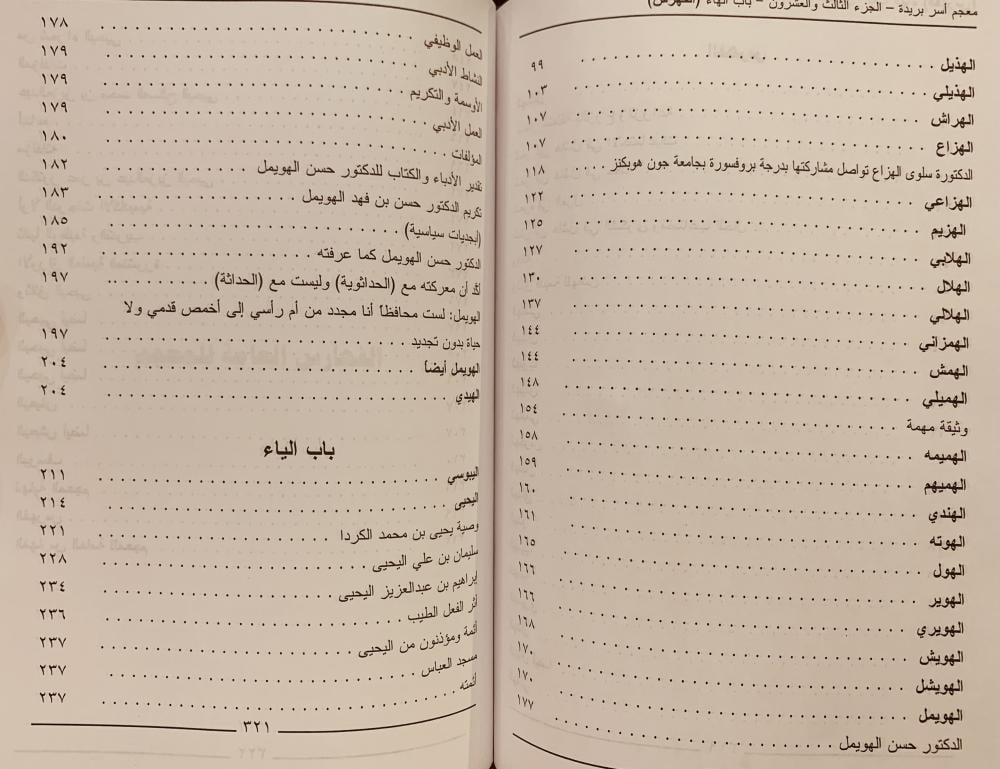 معجم أسر بريدة – الجزء الثالث والعشرون – باب الهاء (الفهرس)
الهذيل ........ ٩٩
الهذيلي ........ ١٠٣
الهراش ........ ١٠٧
الهزاع ........ ١٠٧
الدكتورة سلوى الهزاع تواصل مشاركتها بدرجة بروفسورة بجامعة جون هوبكنز .... ١١٨
الهزاعي ........ ١٢٢
الهزيم ........ ١٢٥
الهلابي ........ ١٢٧
الهلال ........ ١٣٠
الهلالي ........ ١٣٧
الهمزاني ........ ١٤٤
الهمش ........ ١٤٤
الهميلي ........ ١٤٨
وثيقة مهمة ........ ١٥٤
الهميمه ........ ١٥٨
الهميهم ........ ١٥٩
الهندي ........ ١٦٠
الهوته ........ ١٦١
الهول ........ ١٦٥
الهوير ........ ١٦٦
الهويري ........ ١٦٦
الهويش ........ ١٦٨
الهويشل ........ ١٧٠
الهويمل ........ ١٧٠
الدكتور حسن الهويمل ........ ١٧٧
العمل الوظيفي ........ ١٧٨
النشاط الأدبي ........ ١٧٩
الأوسمة والتكريم ........ ١٧٩
العمل الأدبي ........ ١٧٩
المؤلفات ........ ١٨٠
تقدير الأدباء والكتاب للدكتور حسن الهويمل ........ ١٨٢
تكريم الدكتور حسن بن فهد الهويمل ........ ١٨٣
(أبجديات سياسية) ........ ١٨٥
الدكتور حسن الهويمل كما عرفته ........ ١٩٢
أكد أن معركته مع (الحداثوية) وليست مع (الحداثة) ........ ١٩٧
الهويمل: لست محافظاً أنا مجدد من أم رأسي إلى أخمص قدمي ولا
حياة بدون تجديد ........ ١٩٧
الهويمل أيضاً ........ ٢٠٤
الهيدي ........ ٢٠٤
باب الياء
اليبوسي ........ ٢١١
اليحيى ........ ٢١٤
وصية يحيى بن محمد الكردا ........ ٢٢١
سليمان بن علي اليحيى ........ ٢٢٨
إبراهيم بن عبدالعزيز اليحيى ........ ٢٣٤
أثر الفعل الطيب ........ ٢٣٦
أئمة ومؤذنون من اليحيى ........ ٢٣٧
مسجد العباس ........ ٢٣٧
أئمته ........ ٢٣٧
٣٢١